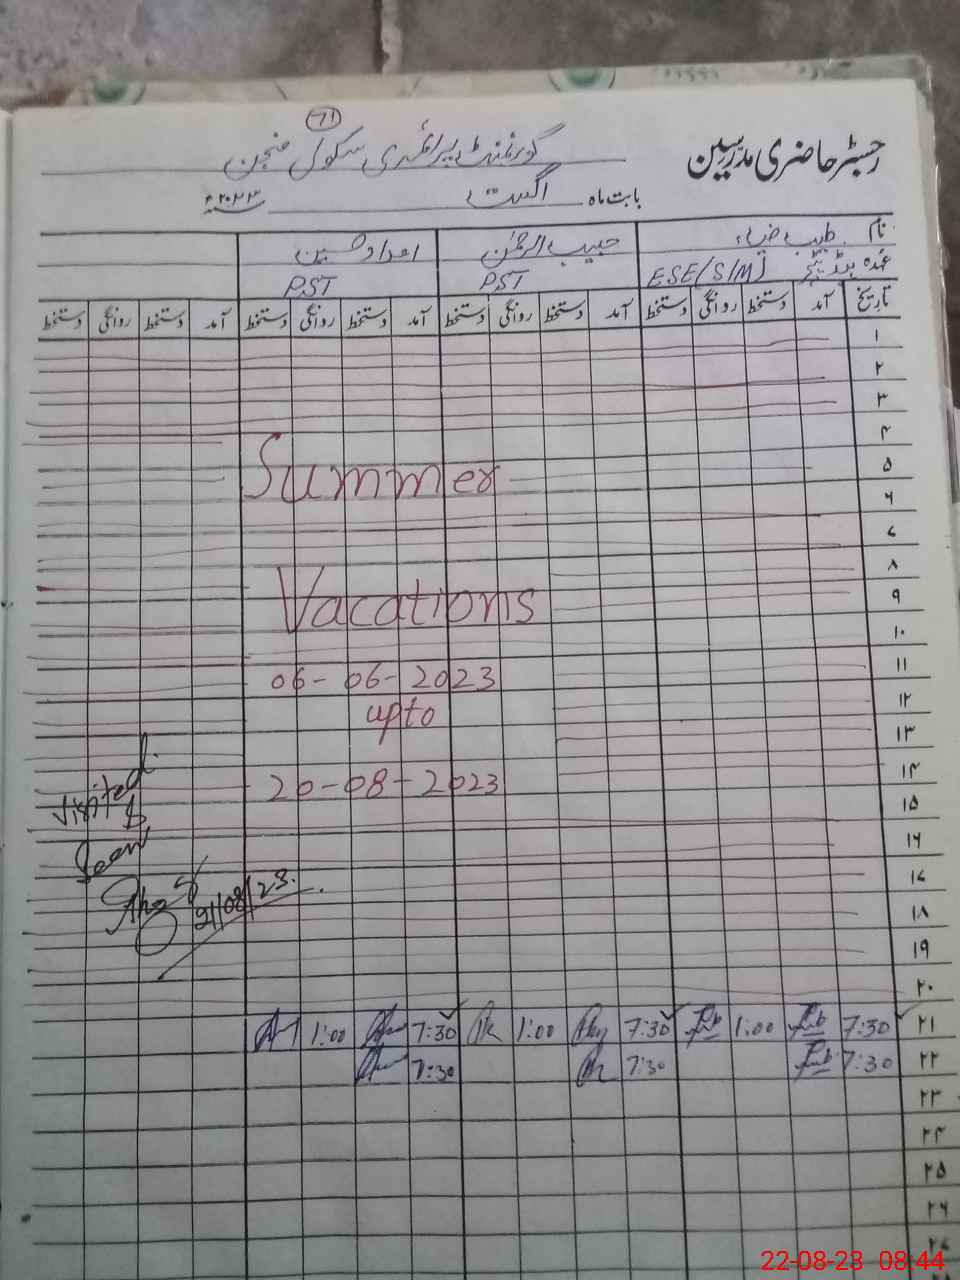 71
رجسٹر حاضری مدرسین گورنمنٹ پرائمری سکول منجن
بابت ماہ اگست ۲۰۲۳ء
نام طیب ضیاء حبیب الرحمٰن امداد حسین
عہدہ ہیڈ ٹیچر ESE(S/M) PST PST
تاریخ آمد دستخط روانگی دستخط آمد دستخط روانگی دستخط آمد دستخط روانگی دستخط آمد دستخط روانگی دستخط
۱
۲
۳
۴
۵
۶
۷
۸
۹
۱۰
۱۱
۱۲
۱۳
۱۴
۱۵
۱۶
۱۷
۱۸
۱۹
۲۰
Summer
Vacations
06-06-2023
upto
20-08-2023
Visited
&
Seen
21/08/23.
۲۱ 7:30 1:00 7:30 1:00 7:30 1:00
۲۲ 7:30 7:30 7:30
۲۳
۲۴
۲۵
۲۶
۲۷
22-08-23 08:44